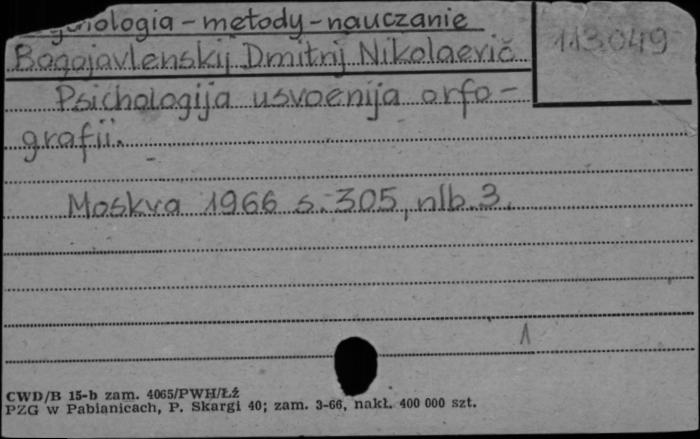 logia - metody - nauczanie
113.049
Bogojavlenskij Dmitrij Nikolaevič
Psichologija usvoenija orfo-
grafii.
Moskva 1966 s. 305, nlb. 3.
1
CWD/B 15-b zam. 4065/PWH/Łź
PZG w Pabianicach, P. Skargi 40; zam. 3-66, nakł. 400 000 szt.